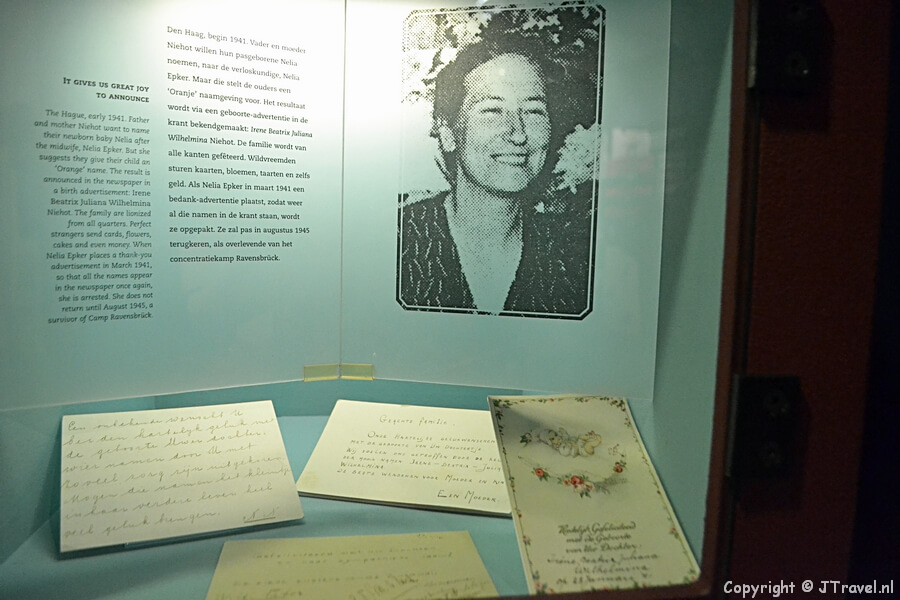 IT GIVES US GREAT JOY
TO ANNOUNCE
The Hague, early 1941. Father
and mother Niehot want to name
their newborn baby Nelia after
the midwife, Nelia Epker. But she
suggests they give their child an
"Orange" name. The result is
announced in the newspaper in
a birth advertisement: Irene
Beatrix Juliana Wilhelmina
Niehot. The family are lionized
from all quarters. Perfect
strangers send cards, flowers,
cakes and even money. When
Nelia Epker places a thank-you
advertisement in March 1941,
so that all the names appear
in the newspaper once again,
she is arrested. She does not
return until August 1945, a
survivor of Camp Ravensbrück.
Den Haag, begin 1941. Vader en moeder
Niehot willen hun pasgeborene Nelia
noemen, naar de verloskundige, Nelia
Epker. Maar die stelt de ouders een
'Oranje' naamgeving voor. Het resultaat
wordt via een geboorte-advertentie in de
krant bekendgemaakt: Irene Beatrix Juliana
Wilhelmina Niehot. De familie wordt van
alle kanten gefêteerd. Wildvreemden
sturen kaarten, bloemen, taarten en zelfs
geld. Als Nelia Epker in maart 1941 een
bedank-advertentie plaatst, zodat weer
al die namen in de krant staan, wordt
ze opgepakt. Ze zal pas in augustus 1945
terugkeren, als overlevende van het
concentratiekamp Ravensbrück.
Een onbekende wenscht U
hartelijk geluk met
de geboorte Uwer dochter.
namen door U met
zooveel zorg zijn
Mogen die namen het kleintje
in haar verdere leven heel
veel geluk brengen.
Geachte familie.
Onze hartelijke gelukwenschen
met de geboorte van Uw dochtertje
Wilhelmina
Een Moeder.
Hartelijk Gefeliciteerd
met de Geboorte
van Uw Dochter
Irene Beatrix Juliana
Wilhelmina
Copyright © JTravel.nl